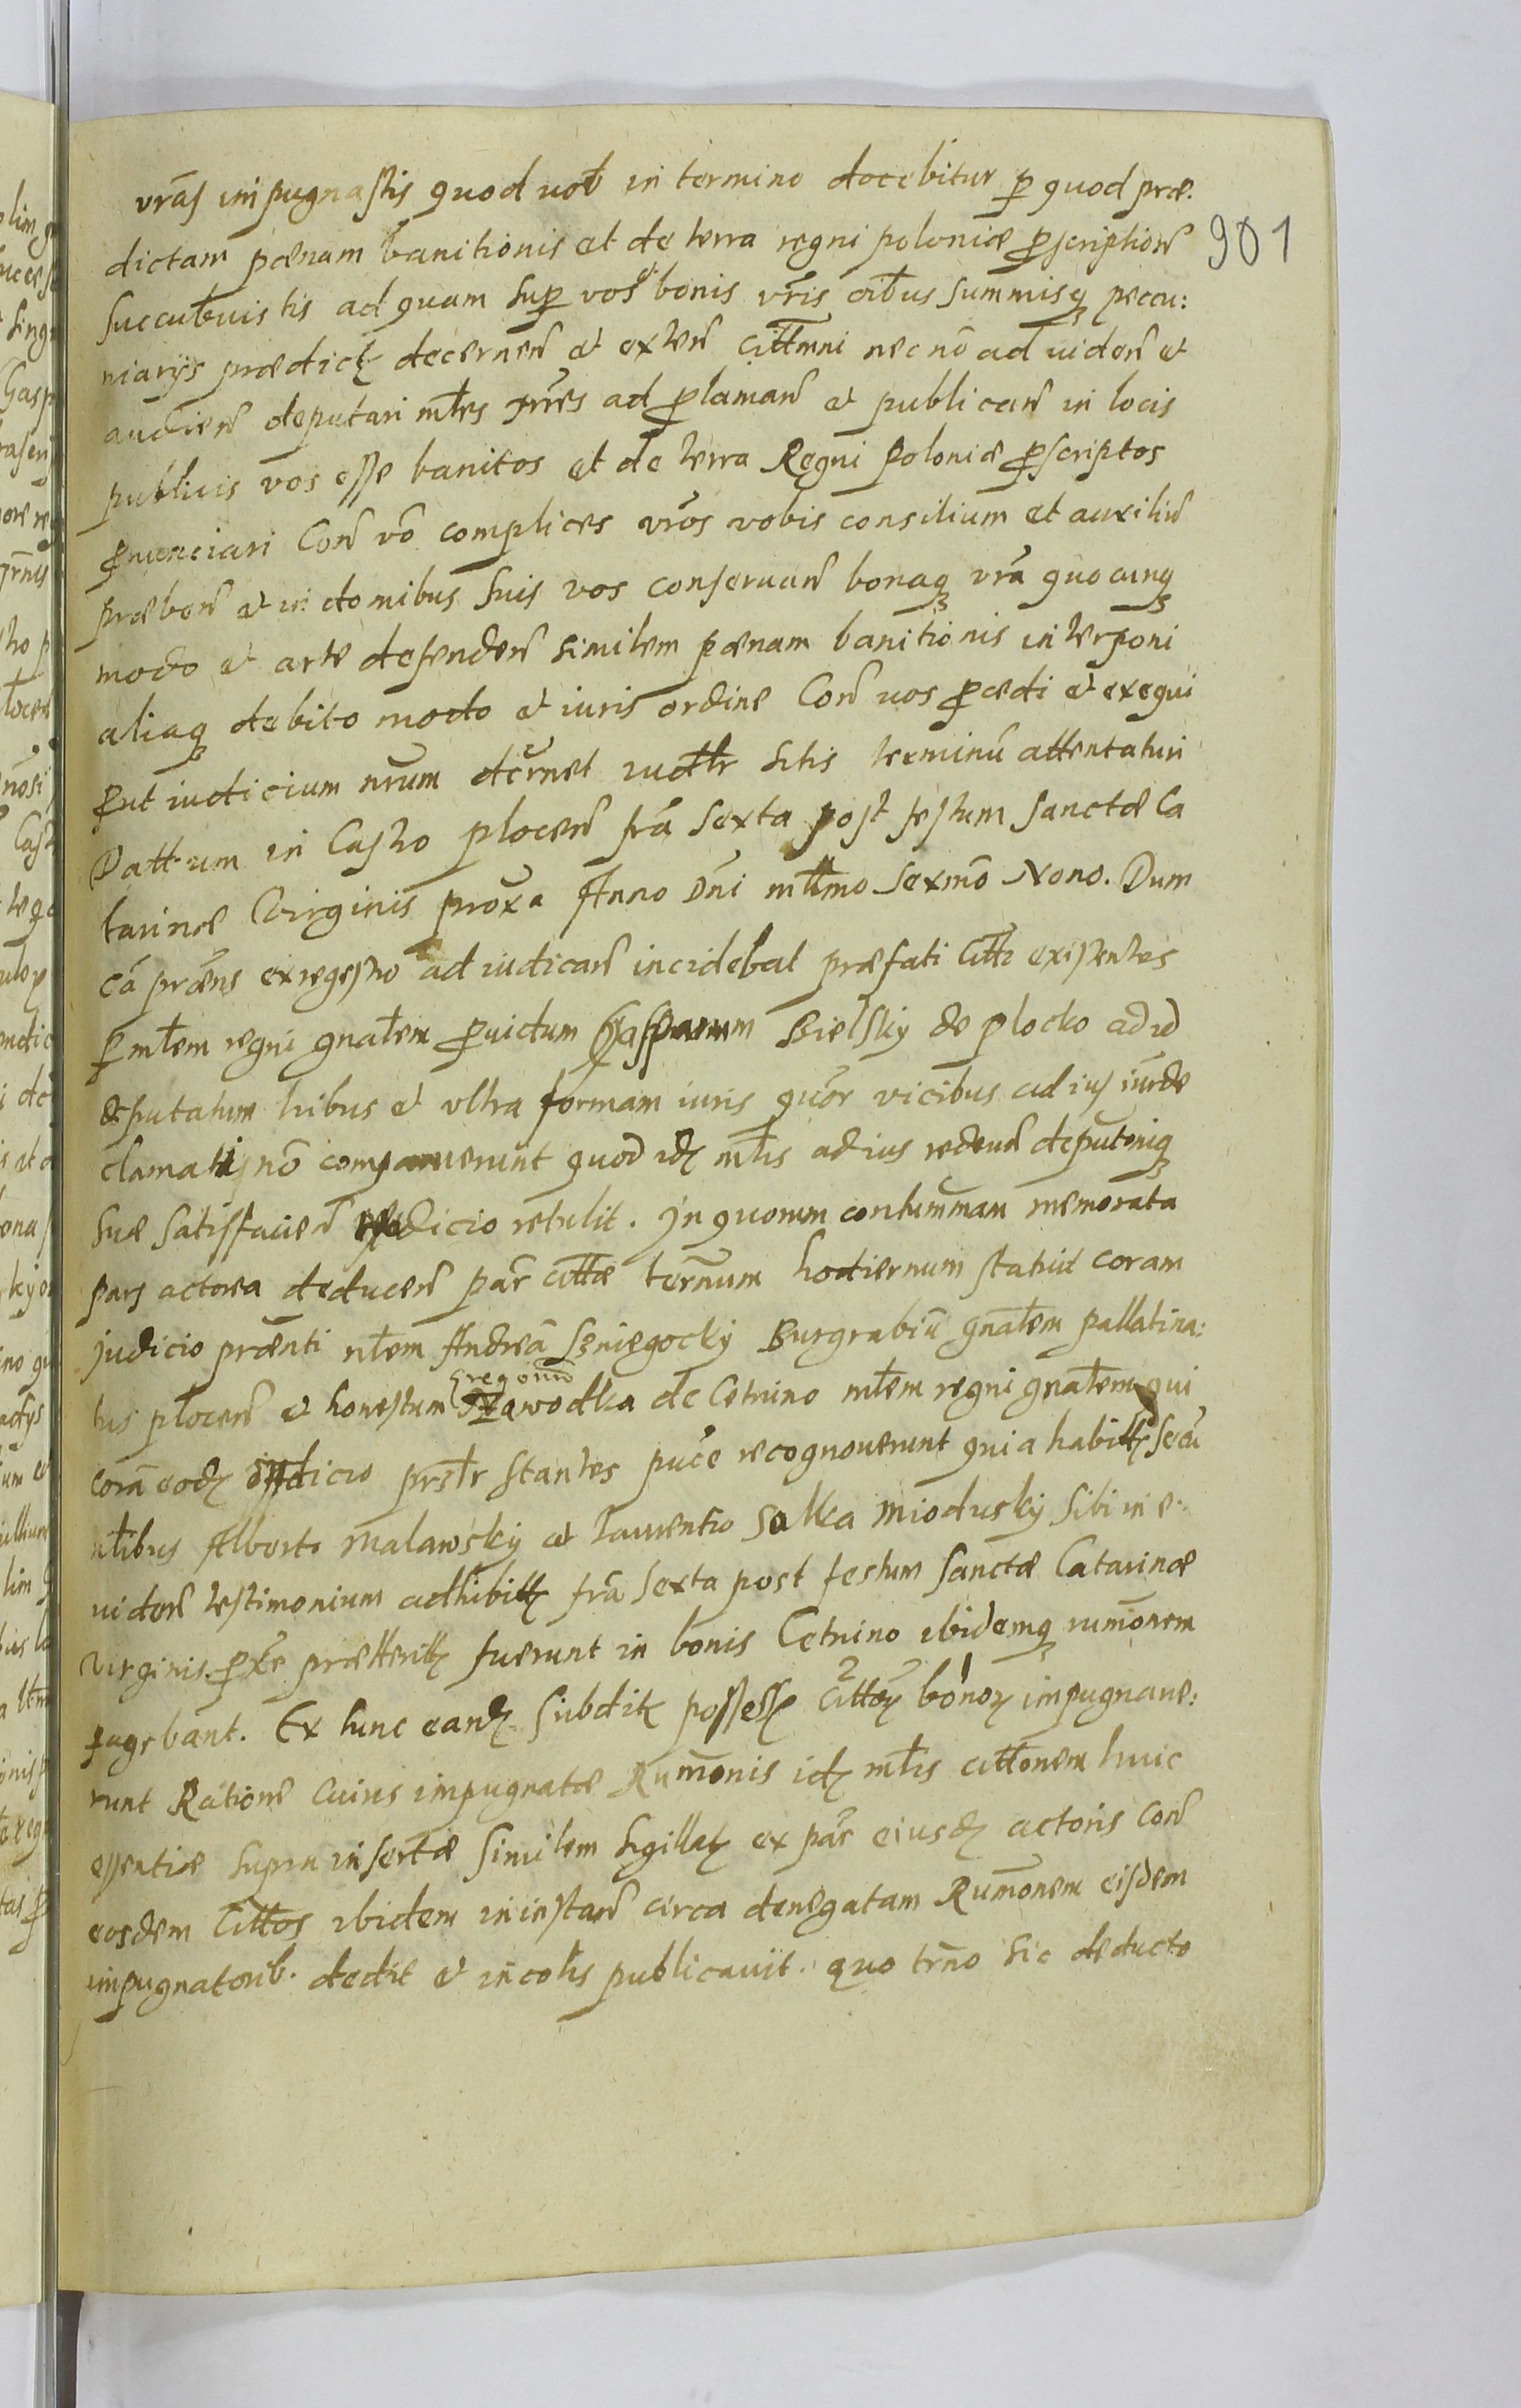 vrãs impugnastis quod vob in termino docebitur p quod præ.
dictam pœnam banitionis et de terra regni poloniæ pscription
succubuistis ad quam sup vos et bonis vris oibus summisq peccu:
niarijs prædict decernen et exten cittmni nec nõ ad viden et
audien deputari mles grles ad pclaman et publican in locis
publicis vos esse banitos et de terra Regni poloniæ pscriptos
pnunciari Con võ complices vros vobis consilium et auxiliũ
præben et in domibus suis vos conservan bonaq vrã quocunq
modo et arte defenden similem pœnam banitionis interponi
aliaq debito modo et iuris ordine Con vos pcedi et exequi
put iudicium nrum decrnet iudtr sitis terminũ attentaturi
Dattum in Castro plocen frã sexta post festum sanctæ Ca
tarinæ Virginis proxa Anno Dni mllmo sexmo Nono. Dum
cã præns ex regestro ad iudican incidebat præfati citti existentes
p mlem regni gnalem pvidum Gasparum Bielsky de plocko ad id
deputatum tribus et ultra formam iuris quor vicibus ad ius iurde
clamati nõ comparuerunt quod idz mlis ad ius redeun deputoniq
suæ satisfacien iudicio retulit. In quorum contummam memorata
pars actorea deducen par cittæ termum hodiernum statuit coram
Judicio prænti nlem Andreã Szniegocky Burgrabiũ gnalem pallatina:
tus plocen et honestum Gregoriũ Zawodka de Cetnino mlem regni gnalem qui
corã eodz iudicio prstr stantes puce recognoverunt quia habitt secũ
nlibus Alberto Malawsky et laurentio Salka Miodusky sibi in e.
viden testimonium adhibitt frã sexta post festum sanctæ Catarinæ
virginis pxe præteritt fuerunt in bonis Cetnino ibidemq rumonem
Ex tunc eandz subdit possess cittor bonor impugnave:
runt Ratione cuius impugnatæ Rumonis idz mlis cittonem huic
essentiæ supra insertæ similem sigillat ex par eiusdz actoris con
eosdem cittos ibidem in instan circa denegatam Rumonem eisdem
impugnatorib. dedit et incolis publicavit. quo trno sic deducto
901